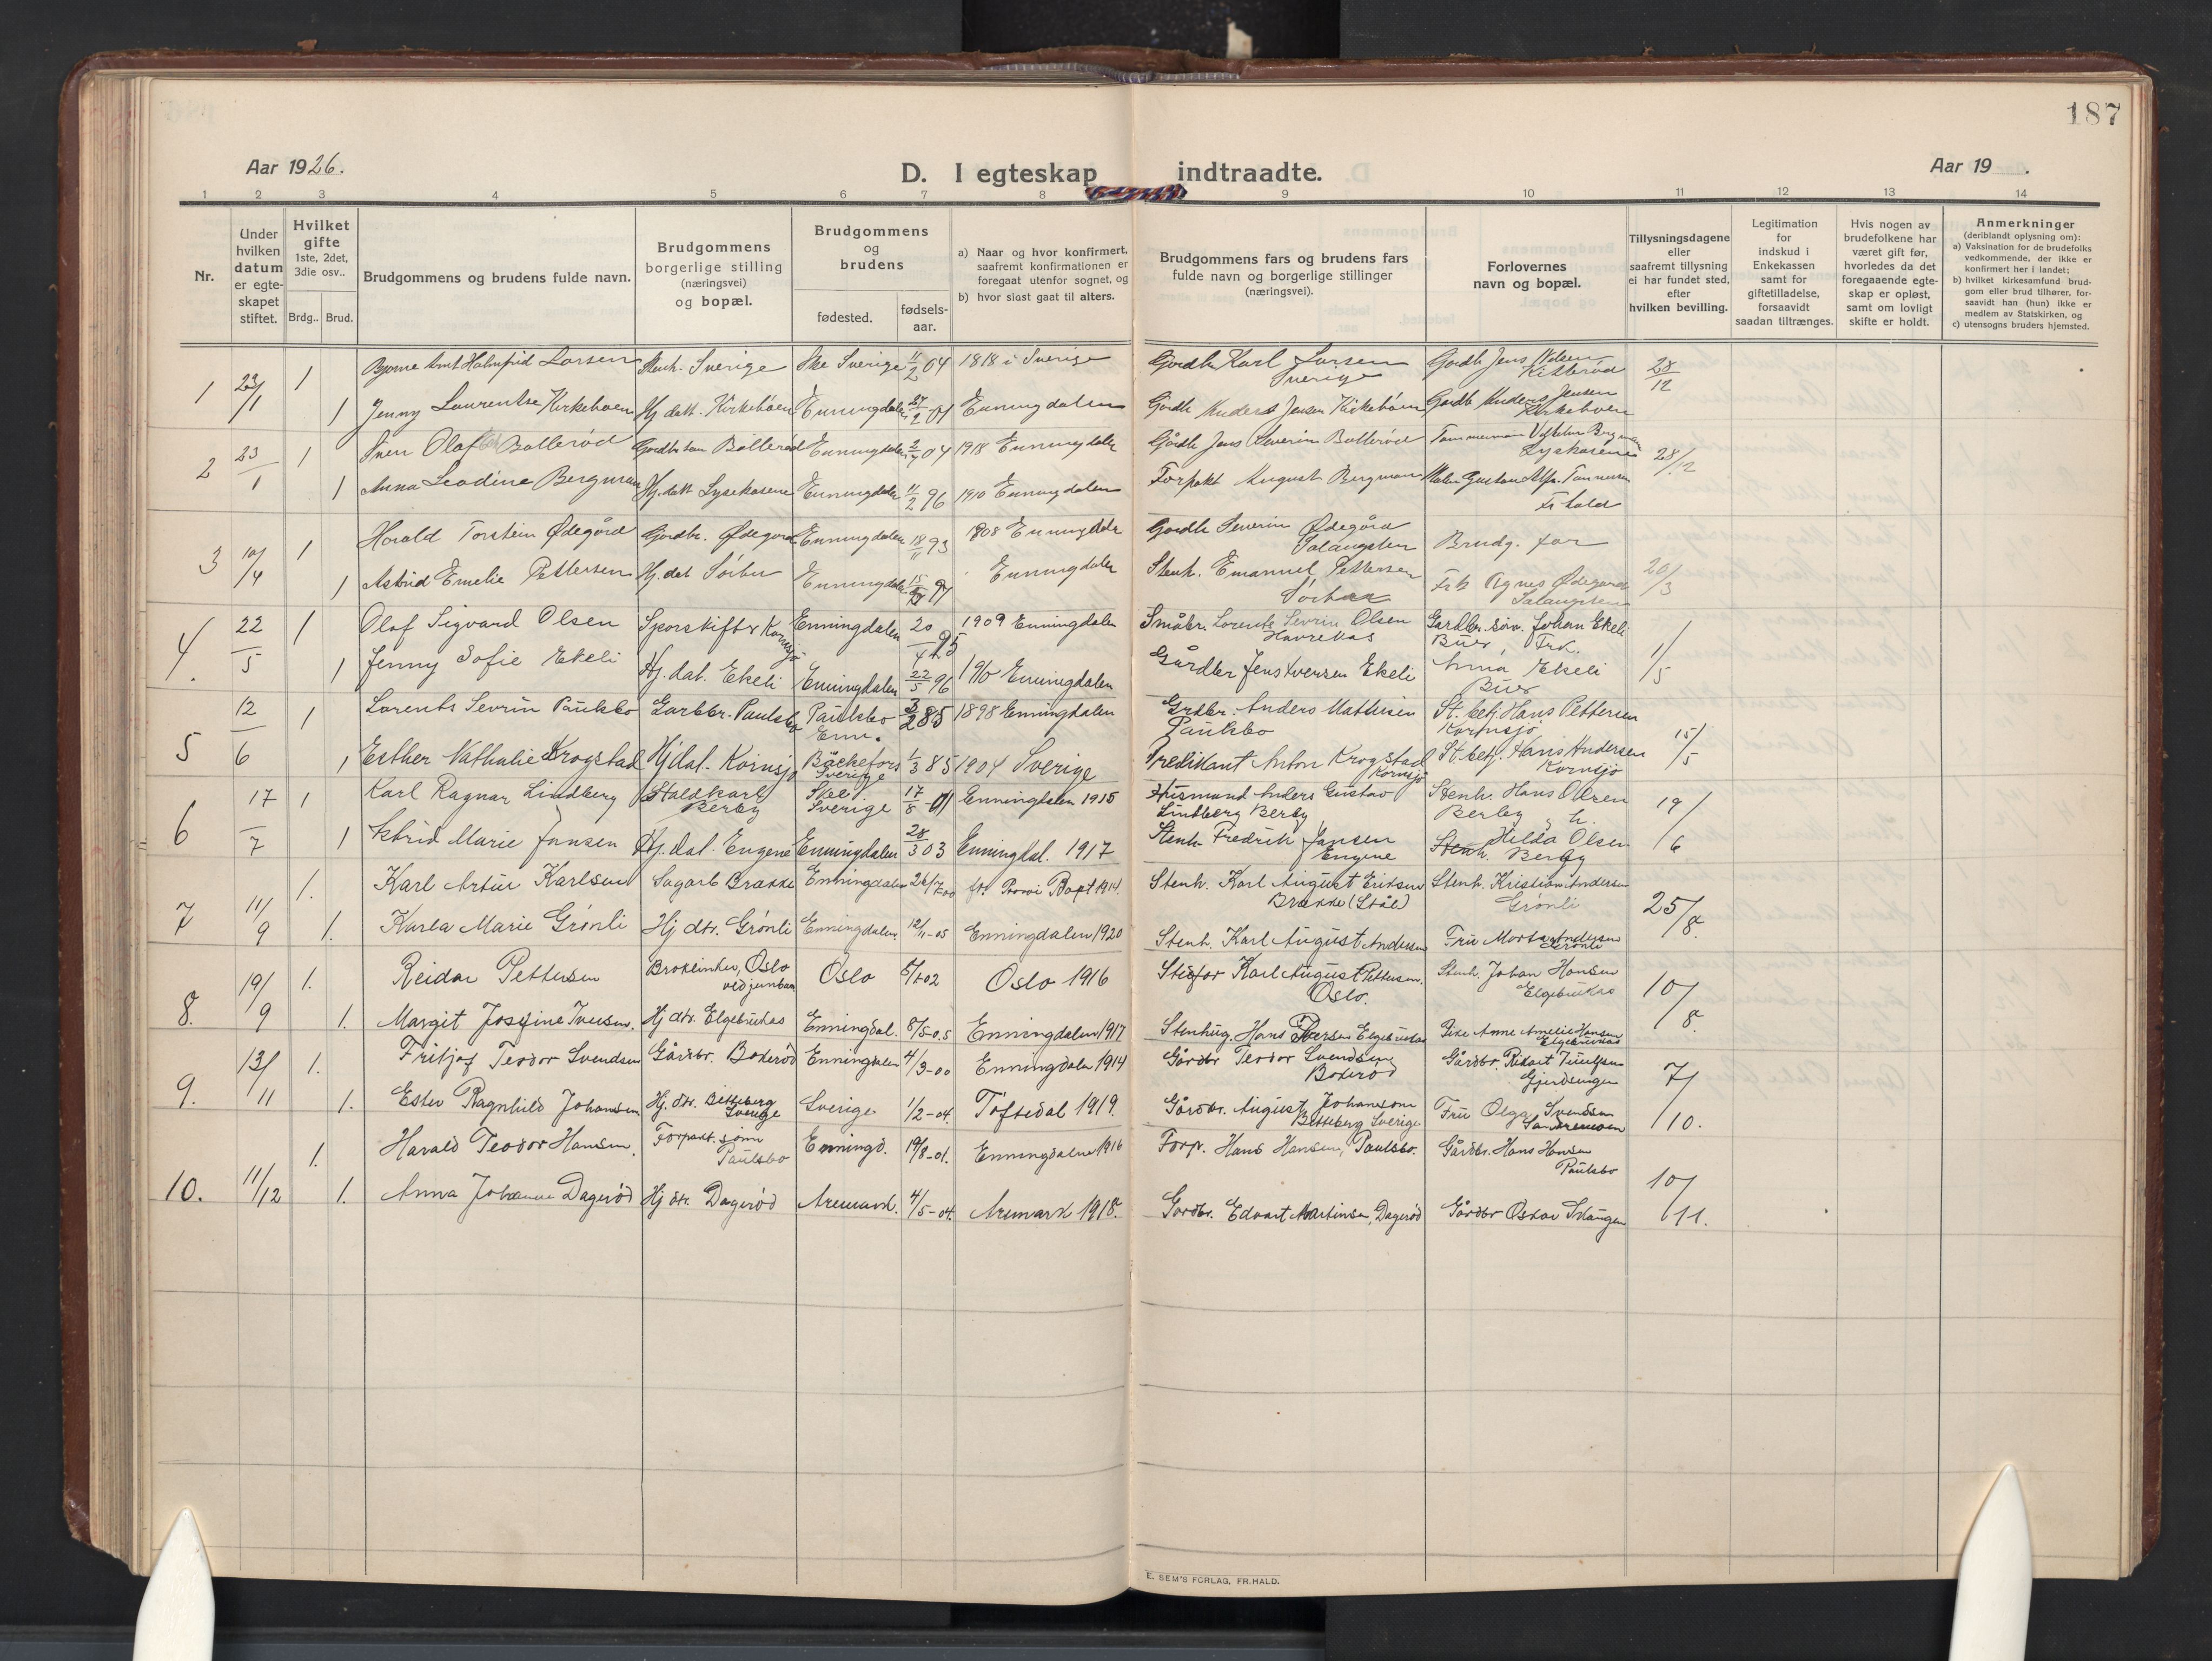 187
Aar 1926.
D. I egteskap indtraadte.
Aar 19 .
1 2 3 4 5 6 7 8 9 10 11 12 13 14
Nr.
Under hvilken datum er egte-skapet stiftet.
Hvilket gifte 1ste, 2det, 3die osv..
Brdg.. Brud.
Brudgommens og brudens fulde navn.
Brudgommens borgerlige stilling (næringsvei) og bopæl.
Brudgommens og brudens
fødested.
fødsels-aar.
a) Naar og hvor konfirmert, saafremt konfirmationen er foregaat utenfor sognet, og
b) hvor sidst gaat til alters.
Brudgommens fars og brudens fars fulde navn og borgerlige stillinger (næringsvei).
Forlovernes navn og bopæl.
Tillysningsdagene eller saafremt tillysning ei har fundet sted, efter hvilken bevilling.
Legitimation for indskud i Enkekassen samt for giftetilladelse, forsaavidt saadan tiltrænges.
Hvis nogen av brudefolkene har været gift før, hvorledes da det foregaaende egte-skap er opløst, samt om lovligt skifte er holdt.
Anmerkninger
(deriblandt oplysning om):
a) Vaksination for de brudefolks vedkommende, der ikke er konfirmert her i landet;
b) hvilket kirkesamfund brud-gom eller brud tilhører, for-saavidt han (hun) ikke er medlem av Statskirken, og
c) utensogns bruders hjemsted.
1 23/1 1 Larsen Stenh. Sverige Skee Sverige 11/2 04 1818 i Sverige Gårdbr Karl Larsen Sverige Gårdb Jens Nilsen Kitterød 28/12
1 Jenny Laurentse Kirkebøen Hj datt. Kirkebøen Enningdalen 27/2 01 Enningdalen Gårdb Anders Jensen Kirkebøen Gårdb Anders Jensen Kirkebøen
2 23/1 1 Sven Olaf Bollerød Gårdbr.søn Bollerød Enningdalen 04 1918 Enningdalen Gårdb Jens Severin Bollerød Tømmerman Vilhelm Bergman Lysekasene 28/12
1 Anna Leodine Bergman Hj. datt Lysekasene Enningdalen 11/2 96 1910 Enningdalen Forpakt August Bergman Maler Gustav Fr.hald
3 10/4 1 Harald Torstein Ødegård Gårdbr. Ødegård Enningdalen 18/11 93 1908 Enningdalen Gårdb Severin Ødegård Brudg. far 20/3
1 Astrid Emelie Pettersen Hj. dat Sörbø Enningdalen 15 97 Enningdalen Stenh. Emanuel Pettersen Frk Agnes Ødegård
4. 22/5 1 Olaf Sigvard Olsen Sporskifter Kornsjø Enningdalen 20/4 95 1909 Enningdalen Småbr. Lorents Sevrin Olsen Havrekas Gardbr. søn. Johan Ekeli Buer, Frk. 1/5
1 Jenny Sofie Ekeli Hj. dat. Ekeli Enningdalen 22/5 96 1910 Enningdalen Gårdbr Jens Iversen Ekeli Anna Ekeli Buer
5 12/6 1 Lorents Sevrin Paulsbo Garbbr. Paulsbo Paulsbo Enn. 3/2 85 1898 Enningdalen Grdbr. Anders Mathisen Paulsbo St. betj. Hans Pettersen Kornsjø 15/5
1 Esther Nathalie Krogstad Hj dat. Kornsjø Bäckefors Sverige 1/3 85 1904 Sverige Predikant Anton Krogstad Kornsjø St. betj. Hans Andersen Kornsjø
6 17/7 1 Karl Ragnar Lindberg Staldkarl Berby Skee Sverige 17/8 01 Enningdalen 1915 Husmand Anders Gustav Lindberg Berby Stenh. Hans Olsen Berby 19/6
1 Astrid Marie Jansen Hj. dat. Engene Enningdalen 28/3 03 Enningdal. 1917 Stenh Fredrik Jansen Engene Hilda Olsen Berby
7 11/9 1. Karl Artur Karlsen Sagarb Brække Enningdalen 26/7 00 1914. Stenh. Karl August Eriksen Brække (Stål) Stenh. Kristian Andersen Grønli 25/8.
1. Karla Marie Grønli Hj dtr. Grønli Enningdalen 12/11-05 Enningdalen 1920 Stenh. Karl August Andersen Fru Marta Andersen Grønli
8. 19/9 1. Reidar Pettersen Oslo Oslo 02 Oslo 1916 Stefar Karl August Pettersen. Oslo. Stenh. Johan Hansen Elgebukas 10/8.
1. Margit Josefine Iversen. Hj dtr. Elgebukas Enningdal. 8/5-05 Enningdalen 1917 Stenhug. Hans Elgebukas Pike Anne Amelie Hansen Elgebukas
9. 13/11 1. Fritjof Teodor Svendsen Gårdbr. Bokerød Enningdalen 4/3-00 Enningdalen 1914 Gårdbr Teodor Svendsen Bokerød Gårdbr. Rikart Gjerdsengen 7/10.
1. Ester Ragnhild Johansen Hj. dtr. Betteberg Sverige Sverige 1/2-04. Töftedal 1919. Gårdbr. August Johansson Betteberg Sverige Fru Olga Svendsen
10. 11/12 1. Harald Teodor Hansen. Forpakt. sønn Paulsbo Enningd. 19/8-01. Enningdalen 1916 Forp. Hans Hansen, Paulsbo. Gårdbr. Hans Hansen Paulsbo 10/11.
1. Anna Johanne Dagerød Hj dtr. Dagerød Aremark. 4/5-04. Aremark 1918. Gardbr. Edvart Martinsen, Dagerød Gårdbr Oskar
E. SEM'S FORLAG, FR.HALD.